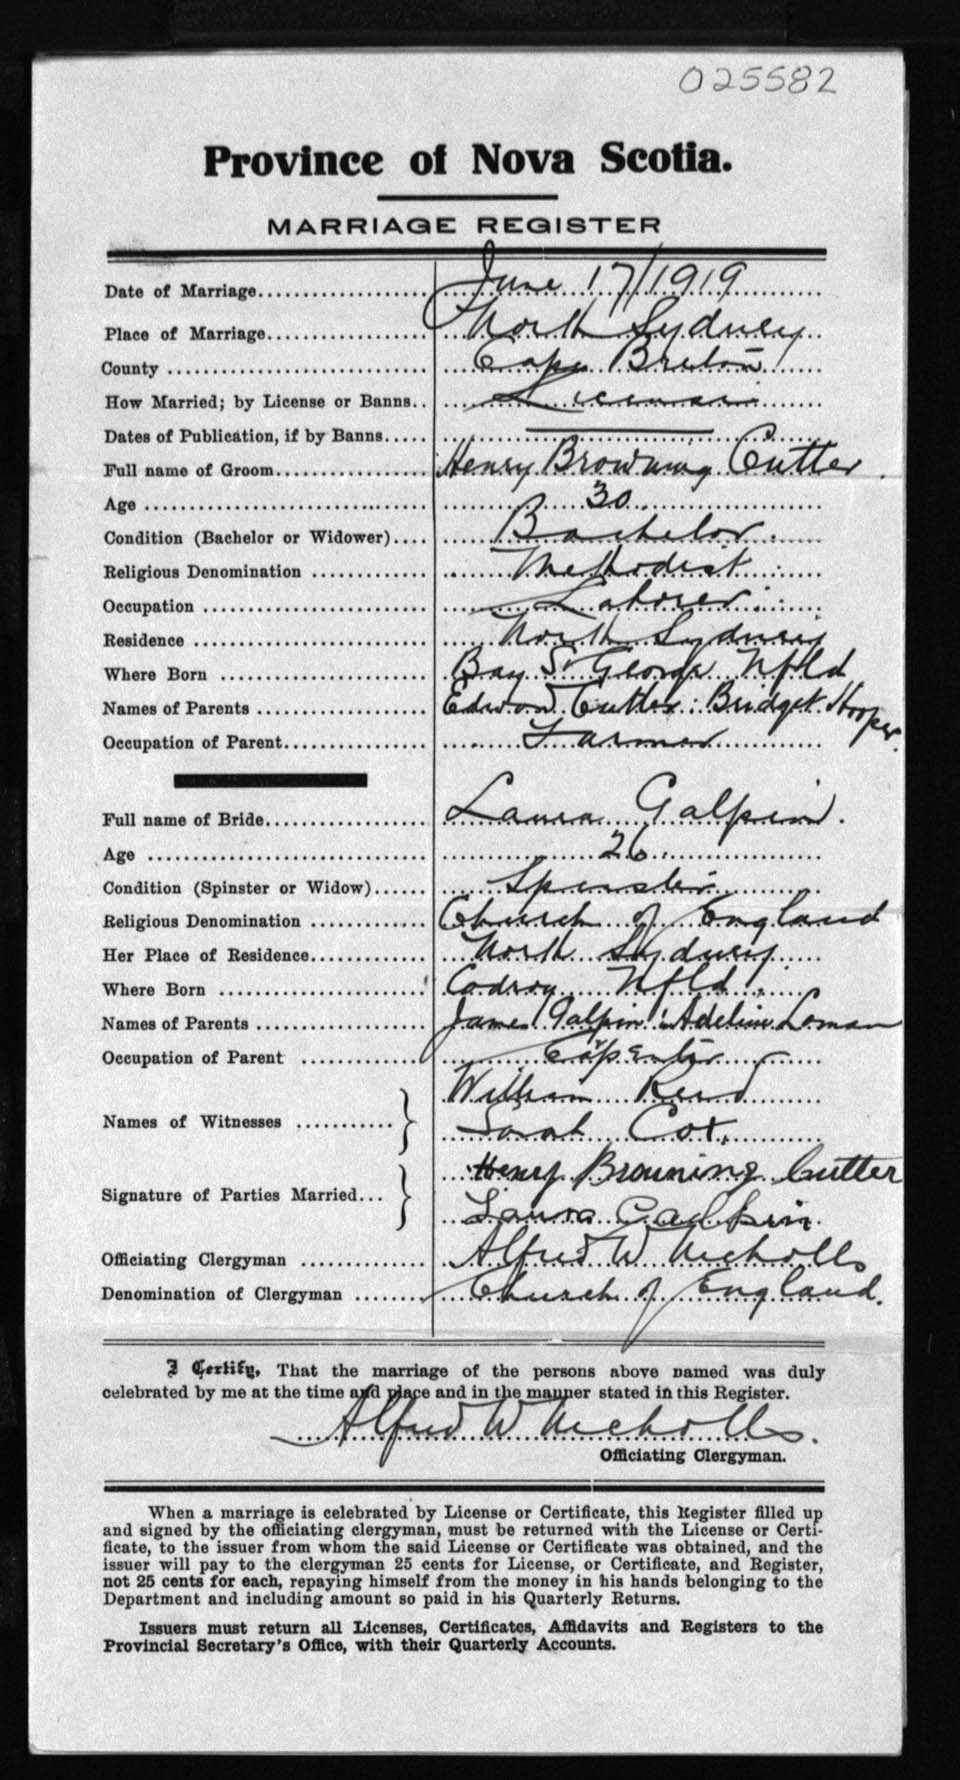 025582
Province of Nova Scotia.
MARRIAGE REGISTER
Date of Marriage.................... June 17/1919
Place of Marriage................... North Sydney
County ............................. Cape Breton
How Married; by License or Banns.. License
Dates of Publication, if by Banns.....
Full name of Groom.................. Henry Browning Cutler.
Age ............................ 30
Condition (Bachelor or Widower).... Bachelor.
Religious Denomination ............ Methodist
Occupation ......................... Laborer.
Residence .......................... North Sydney
Where Born ........................ Bay St George Nfld
Names of Parents ................... Edward Cutler: Bridget Hooper.
Occupation of Parent................ Farmer
Full name of Bride.................. Laura Galpin.
Age ............................... 26
Condition (Spinster or Widow)...... Spinster
Religious Denomination ............ Church of England
Her Place of Residence............. North Sydney
Where Born ........................ Codroy Nfld.
Names of Parents ................... James Galpin: Adeline Loman
Occupation of Parent ............... Carpenter
William
Names of Witnesses ............ Sarah Cox.
Henry Browning Cutter
Signature of Parties Married... Laura Galpin
Officiating Clergyman .............. Alfred W Nicholls
Denomination of Clergyman ........ Church of England.
I Certify, That the marriage of the persons above named was duly
celebrated by me at the time and place and in the manner stated in this Register.
Alfred W Nicholls.
Officiating Clergyman.
When a marriage is celebrated by License or Certificate, this Register filled up
and signed by the officiating clergyman, must be returned with the License or Certi-
ficate, to the issuer from whom the said License or Certificate was obtained, and the
issuer will pay to the clergyman 25 cents for License, or Certificate, and Register,
not 25 cents for each, repaying himself from the money in his hands belonging to the
Department and including amount so paid in his Quarterly Returns.
Issuers must return all Licenses, Certificates, Affidavits and Registers to the
Provincial Secretary's Office, with their Quarterly Accounts.